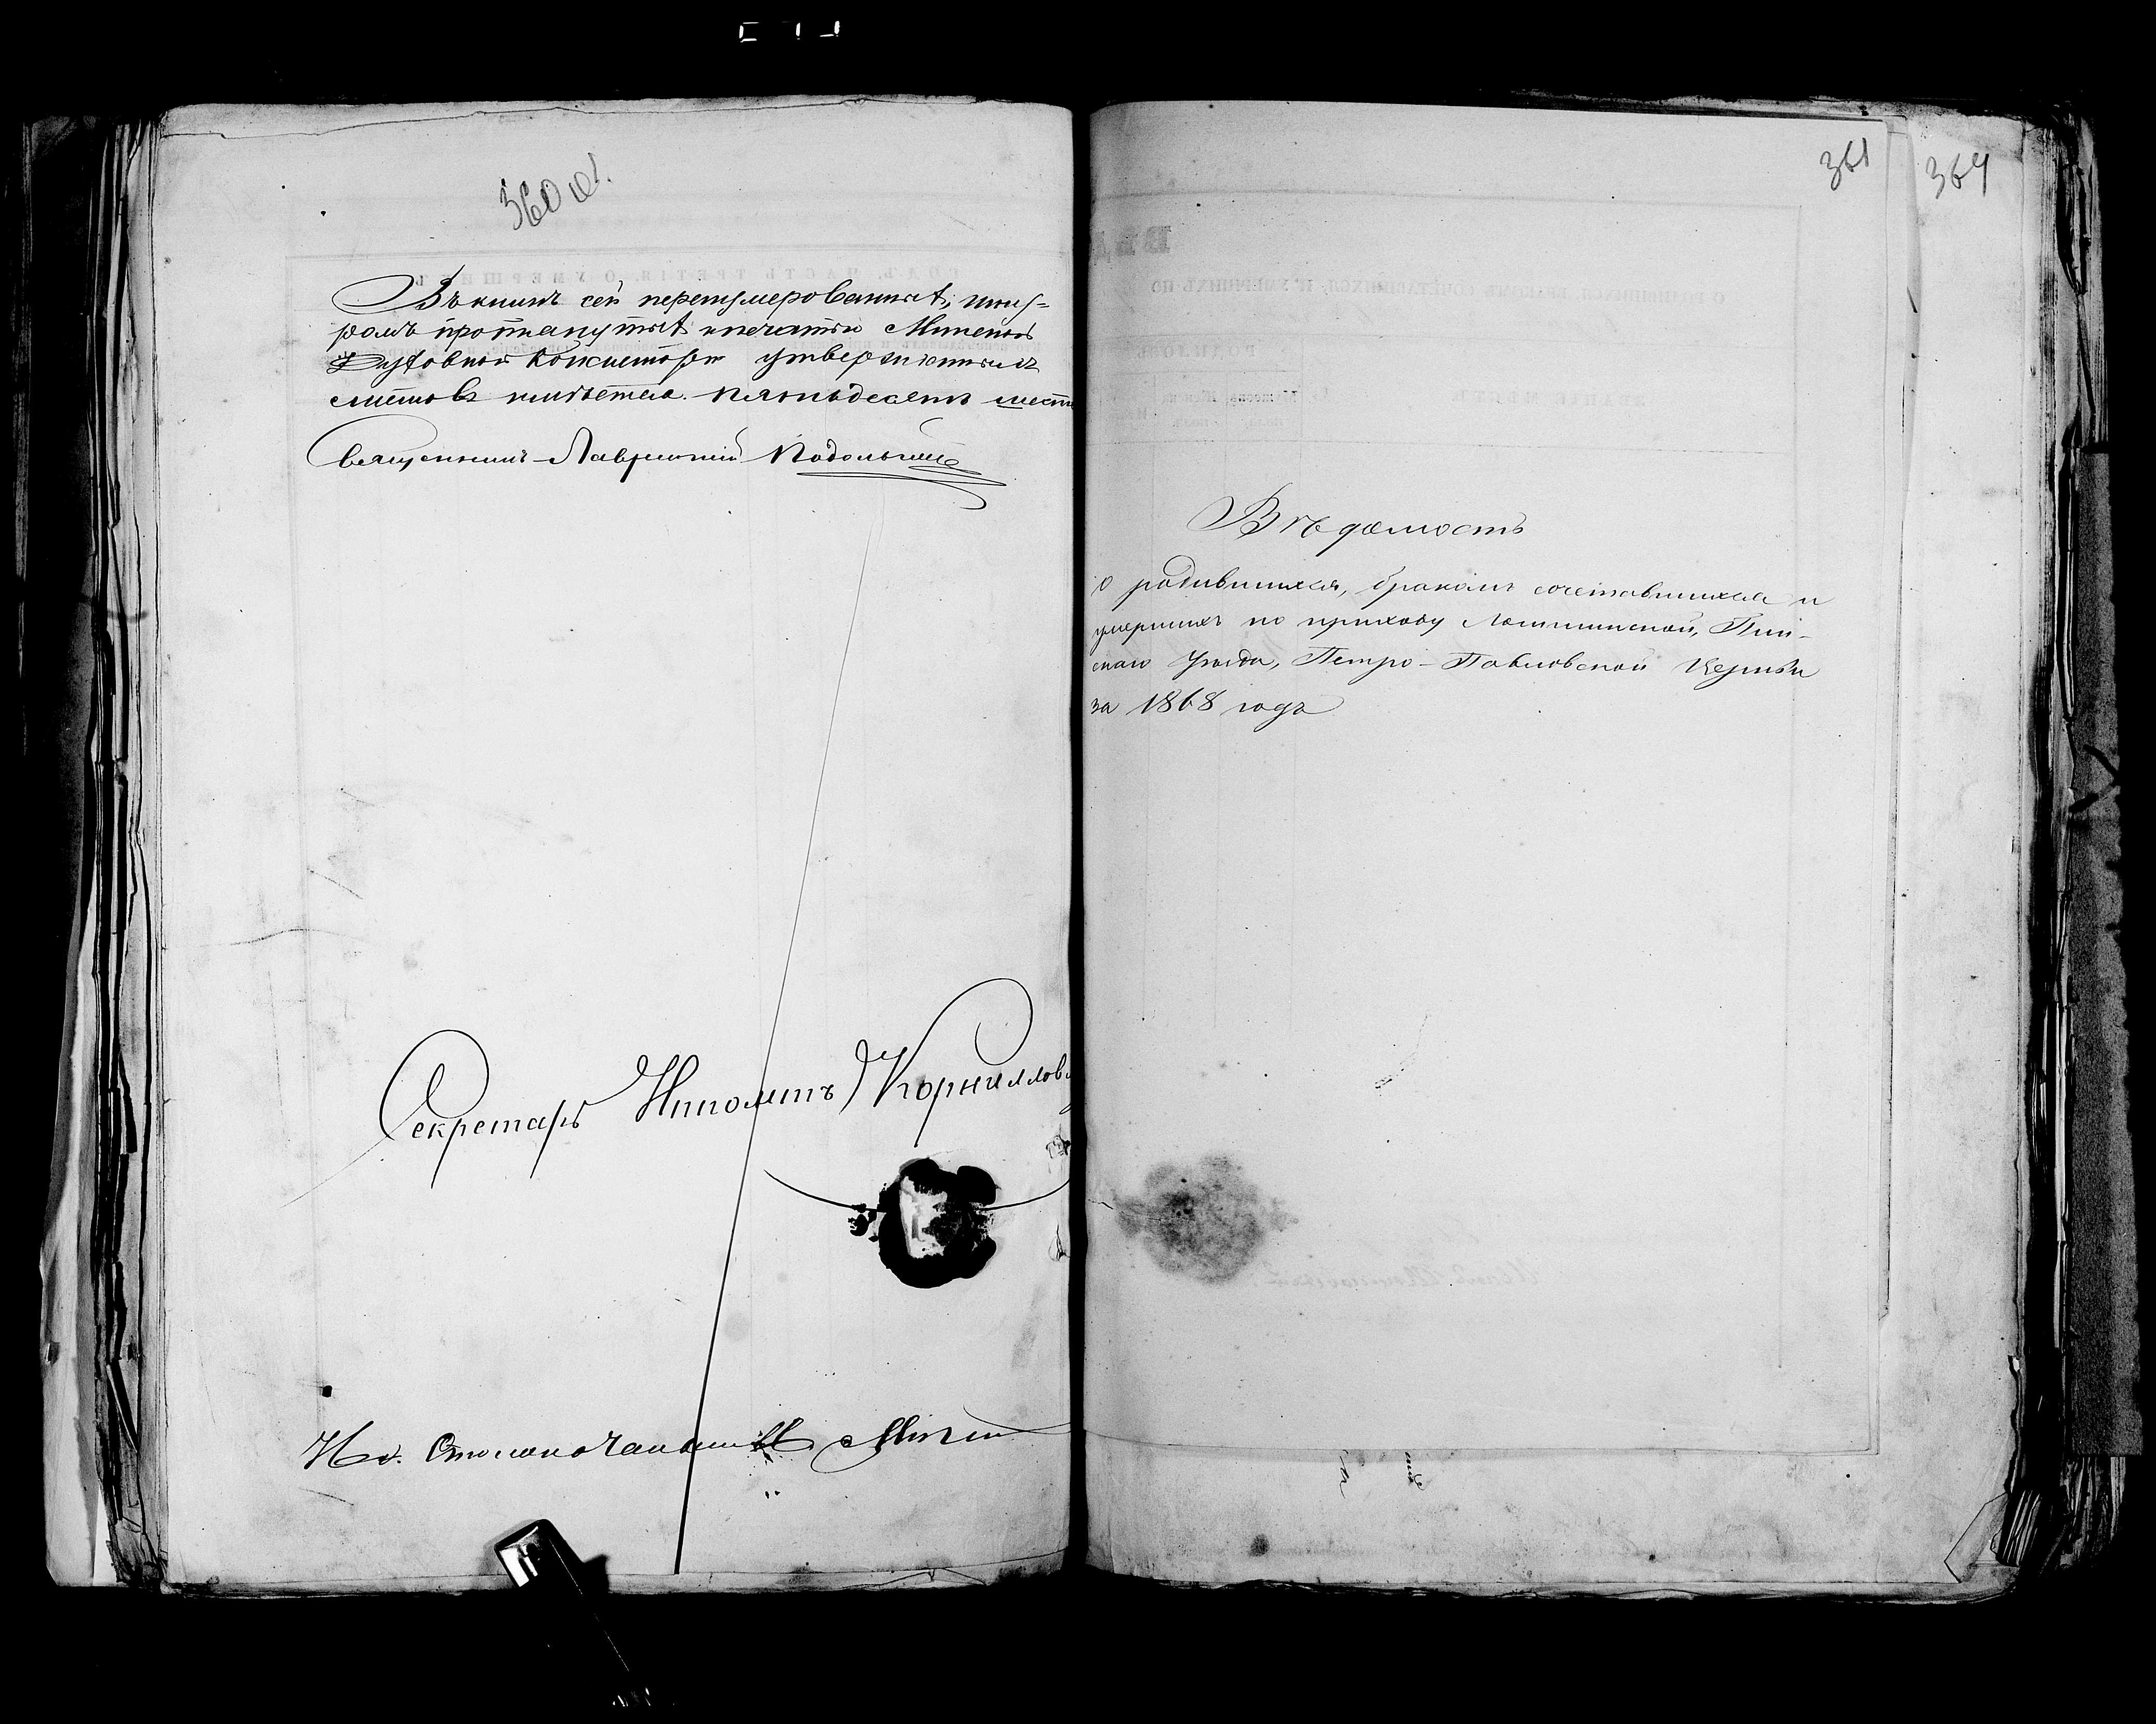 360 об.
Въ книгѣ сей перенумерованныхъ, шну-
ромъ протянутыхъ и печатью Минской
Духовной Консисторіи утвержденныхъ
листовъ имѣется пятьдесятъ шесть
Священникъ Лаврентий Подольский
Секретарь Ипполитъ Корниллов
И. д. Столоначальника
361
364
Вѣдомость
о родившихся, бракомъ сочетавшихся и
умершихъ по приходу Логишинской, Пин-
скаго уѣзда, Петро-Павловской Церкви
за 1868 годъ